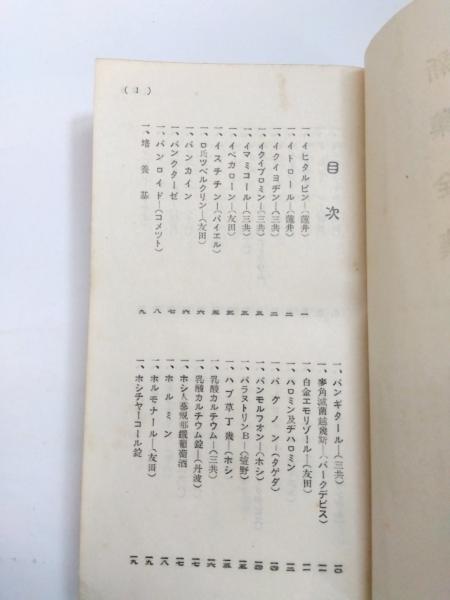 (1)
目次
一、イヒタルビン―(蓮井) 一
一、イトロール―(蓮井) 二
一、イクイヨヂン―(三共) 二
一、イクイブロミン―(三共) 三
一、イマミコール―(三共) 三
一、イペカローン―(友田) 五
一、イスチチン―(バイエル) 五
一、ロ氏ツベルクリン―(友田) 六
一、バンカイン 六
一、パンクターゼ 七
一、パンロイド―(コメツト) 八
一、培養基 九
一、パンギタール―(三共) 一〇
一、麥角滅菌越幾斯―(パークデビス) 一一
一、白金エモリゾール―(友田) 一一
一、ハロミン及デハロミン 一二
一、パグノン―(タケダ) 一四
一、パンモルフオン―(ホシ) 一四
一、パラストリンB―(萓野) 一五
一、ハブ草丁幾―(ホシ) 一五
一、乳酸カルチウム―(三共) 一六
一、乳酸カルチウム錠―(丹波) 一七
一、ホシ人蔘規那鐵葡萄酒 一七
一、ホルミン 一八
一、ホルモナール―(友田) 一九
一、ホシチヤーコール錠 一九